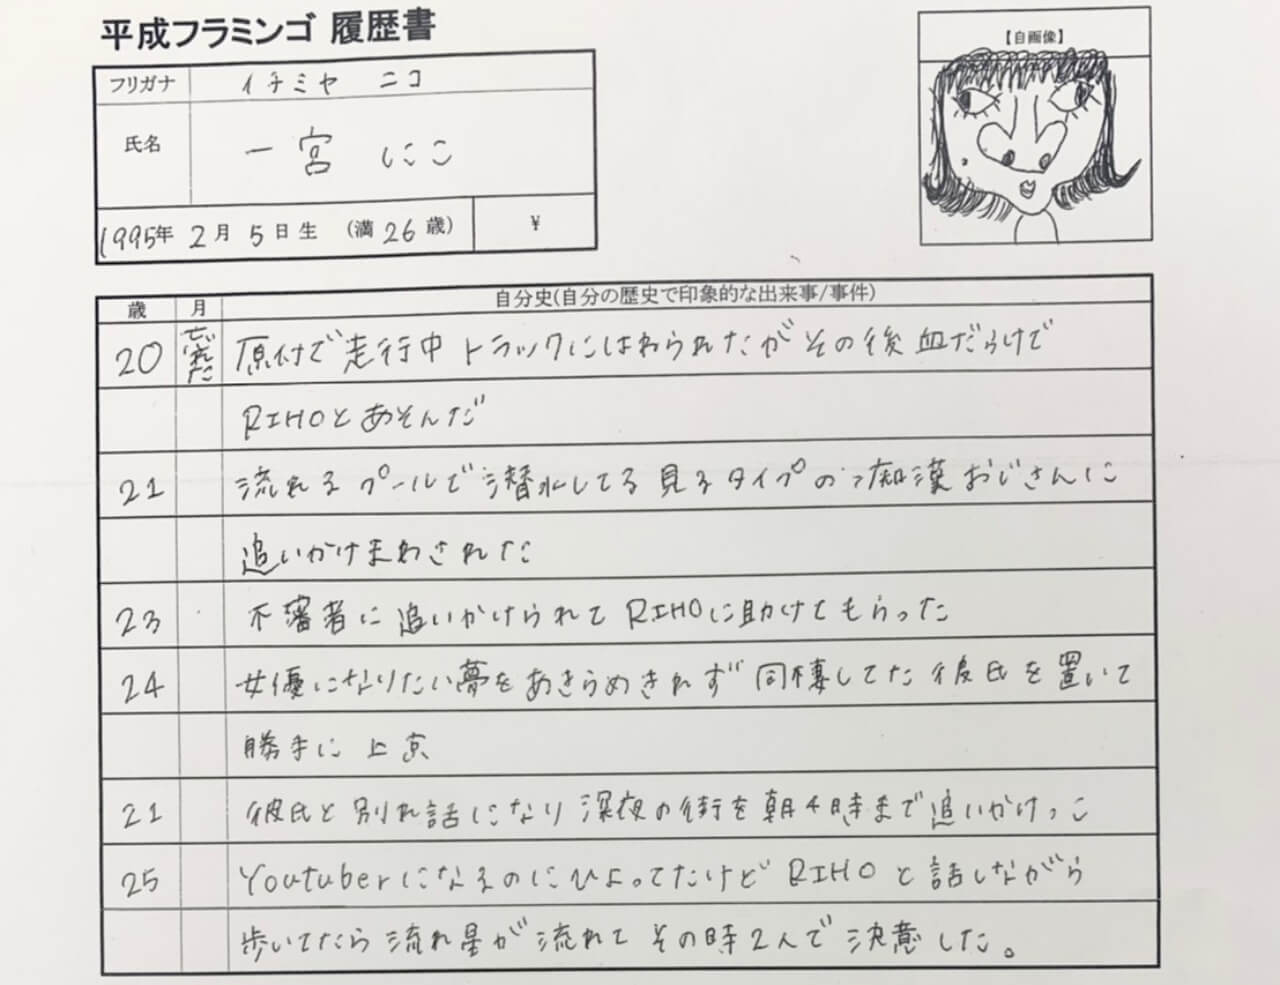 平成フラミンゴ 履歴書
【自画像】
フリガナ イチミヤ ニコ
氏名 一宮 にこ
1995年 2月 5日生 (満 26歳) ¥
歳 月 自分史(自分の歴史で印象的な出来事/事件)
20 忘れた 原付で走行中 トラックにはねられたが その後 血だらけで
RIHOとあそんだ
21 流れるプールで潜水してる 見るタイプの痴漢おじさんに
追いかけまわされた
23 不審者に追いかけられて RIHOに助けてもらった
24 女優になりたい夢をあきらめきれず 同棲してた 彼氏を置いて
勝手に上京
21 彼氏と別れ話になり 深夜の街を朝4時まで追いかけっこ
25 Youtuberになるのにひよってたけど RIHOと話しながら
歩いてたら 流れ星が流れて その時2人で決意した。